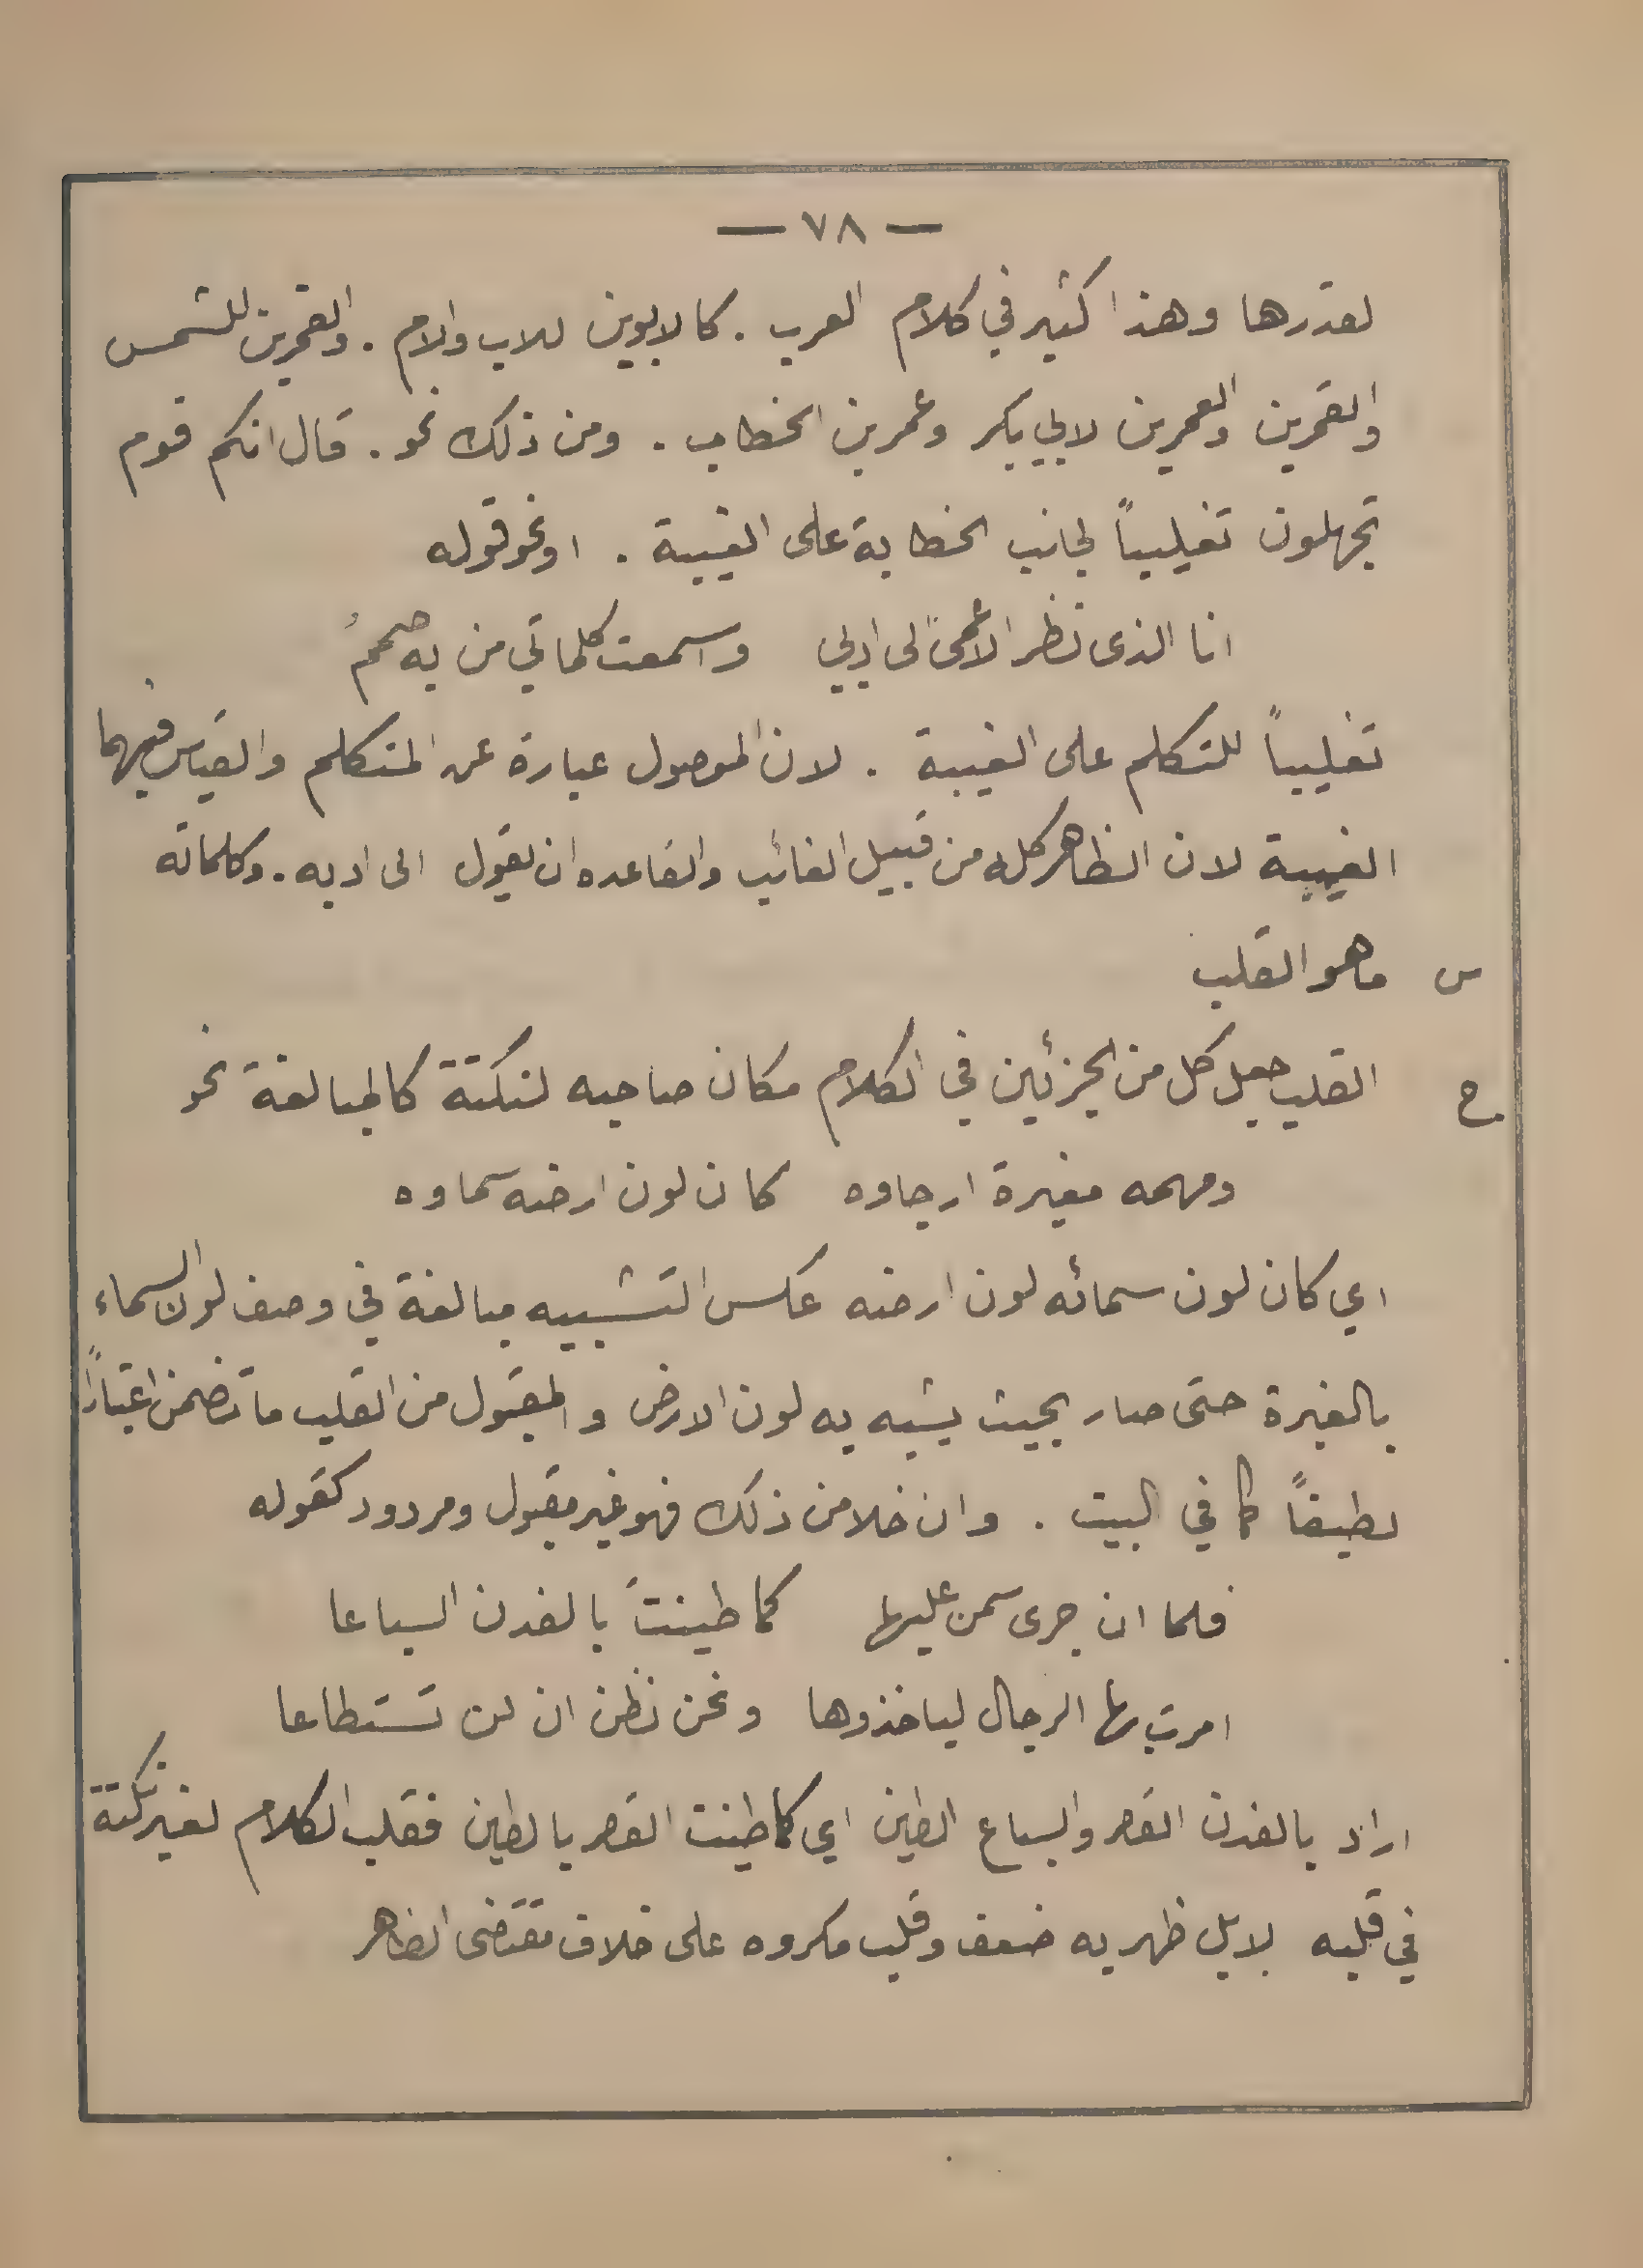 — ٧٨ —
لقدرها وهذا كثير في كلام العرب . كالابوين للاب والام . والقمرين للشمس
والقمرين والعمرين لابي بكر وعمر بن الخطاب . ومن ذلك نحو . قال انكم قوم
تجهلون تغليباً لجانب الخطابة على الغيبة . او نحو قوله
انا الذى نظر الاعمى الى ادبي واسمعت كلماتي من به صممُ
تغليباً للتكلم على الغيبة . لان الموصول عبارة عن المتكلم والقياس فيهما
الغيبة لان الظاهر كله من قبيل الغائب والقاعده ان يقول الى ادبه . وكلماته
س ماهو القلب
ج القلب جعل كل من الجزئين في الكلام مكان صاحبه لنكتة كالمبالغة نحو
ومهمه مغبرة ارجاوه كان لون ارضه سماوه
اي كان لون سمائه لون ارضه عكس التشبيه مبالغة في وصف لون السماء
بالغبرة حتى صار بحيث يشبه به لون الارض والمقبول من القلب ما تضمن اعتباراً
لطيفاً كما في البيت . وان خلا من ذلك فهو غير مقبول ومردود كقوله
فلما ان جرى سمن عليها كما طينتَ بالفدن السباعا
امرت بها الرجال لياخذوها ونحن نظن ان لن تستطاعا
اراد بالفدن القصر والسباع الطين اي كما طينت القصر بالطين فقلب الكلام لغير نكتة
في قلبه لابل ظهر به ضعف وقلب مكروه على خلاف مقتضى الظاهر